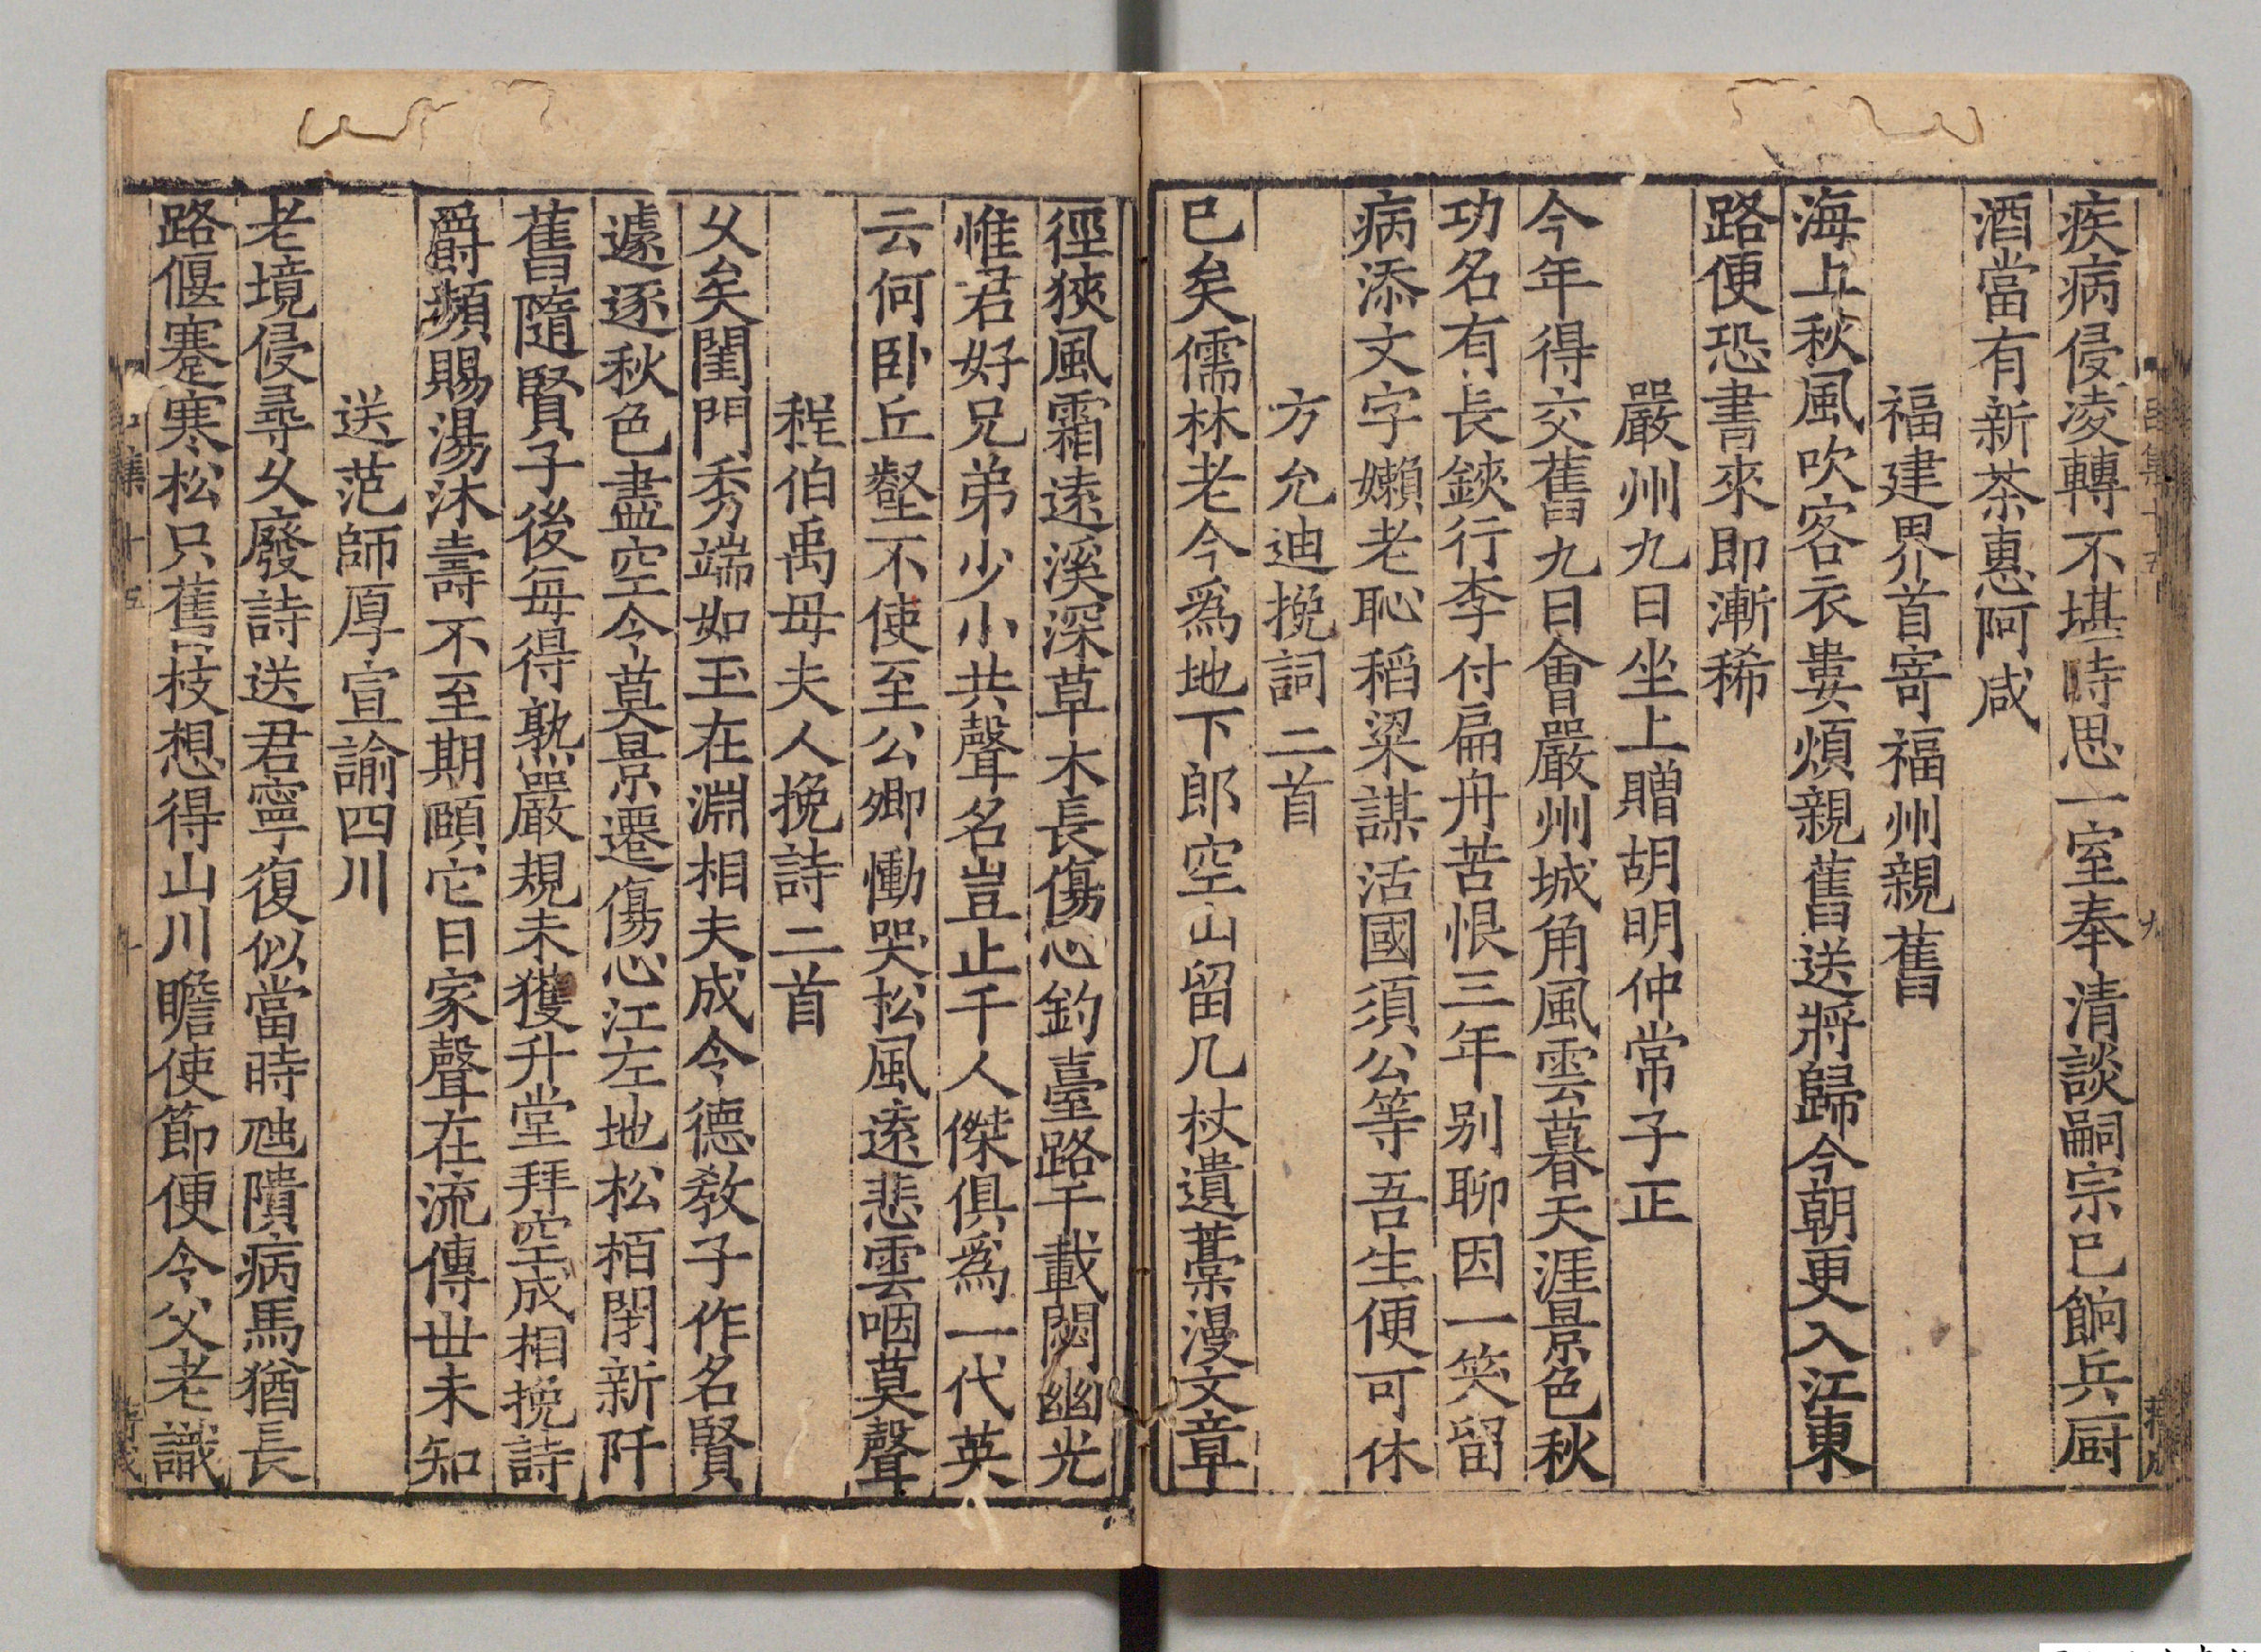 疾病侵凌轉不堪時思一室奉清談嗣宗已餉兵厨
酒當有新茶惠阿咸
福建界首寄福州親舊
海上秋風吹客衣婁煩親舊送將歸今朝更入江東
路便恐書來即漸稀
嚴州九日坐上贈胡明仲常子正
今年得交舊九日會嚴州城角風雲暮天涯景色秋
功名有長鋏行李付扁舟苦恨三年别聊因一笑留
病添文字嬾老恥稻粱謀活國須公等吾生便可休
方允迪挽詞二首
已矣儒林老今爲地下郎空山留几杖遺藁漫文章
徑狹風霜遠溪深草木長傷心釣臺路千載閟幽光
惟君好兄弟少小共聲名豈止千人傑俱爲一代英
云何卧丘壑不使至公卿慟哭松風遠悲雲咽莫聲
程伯禹母夫人挽詩二首
乆矣閨門秀端如玉在淵相夫成令德教子作名賢
遽逐秋色盡空令莫景遷傷心江左地松栢閉新阡
舊隨賢子後每得熟嚴規未獲升堂拜空成相挽詩
爵頻賜湯沐壽不至期頤它日家聲在流傳世未知
送范師厚宣諭四川
老境侵尋乆廢詩送君寧復似當時虺隤病馬猶長
路偃蹇寒松只舊枝想得山川瞻使節便令父老識